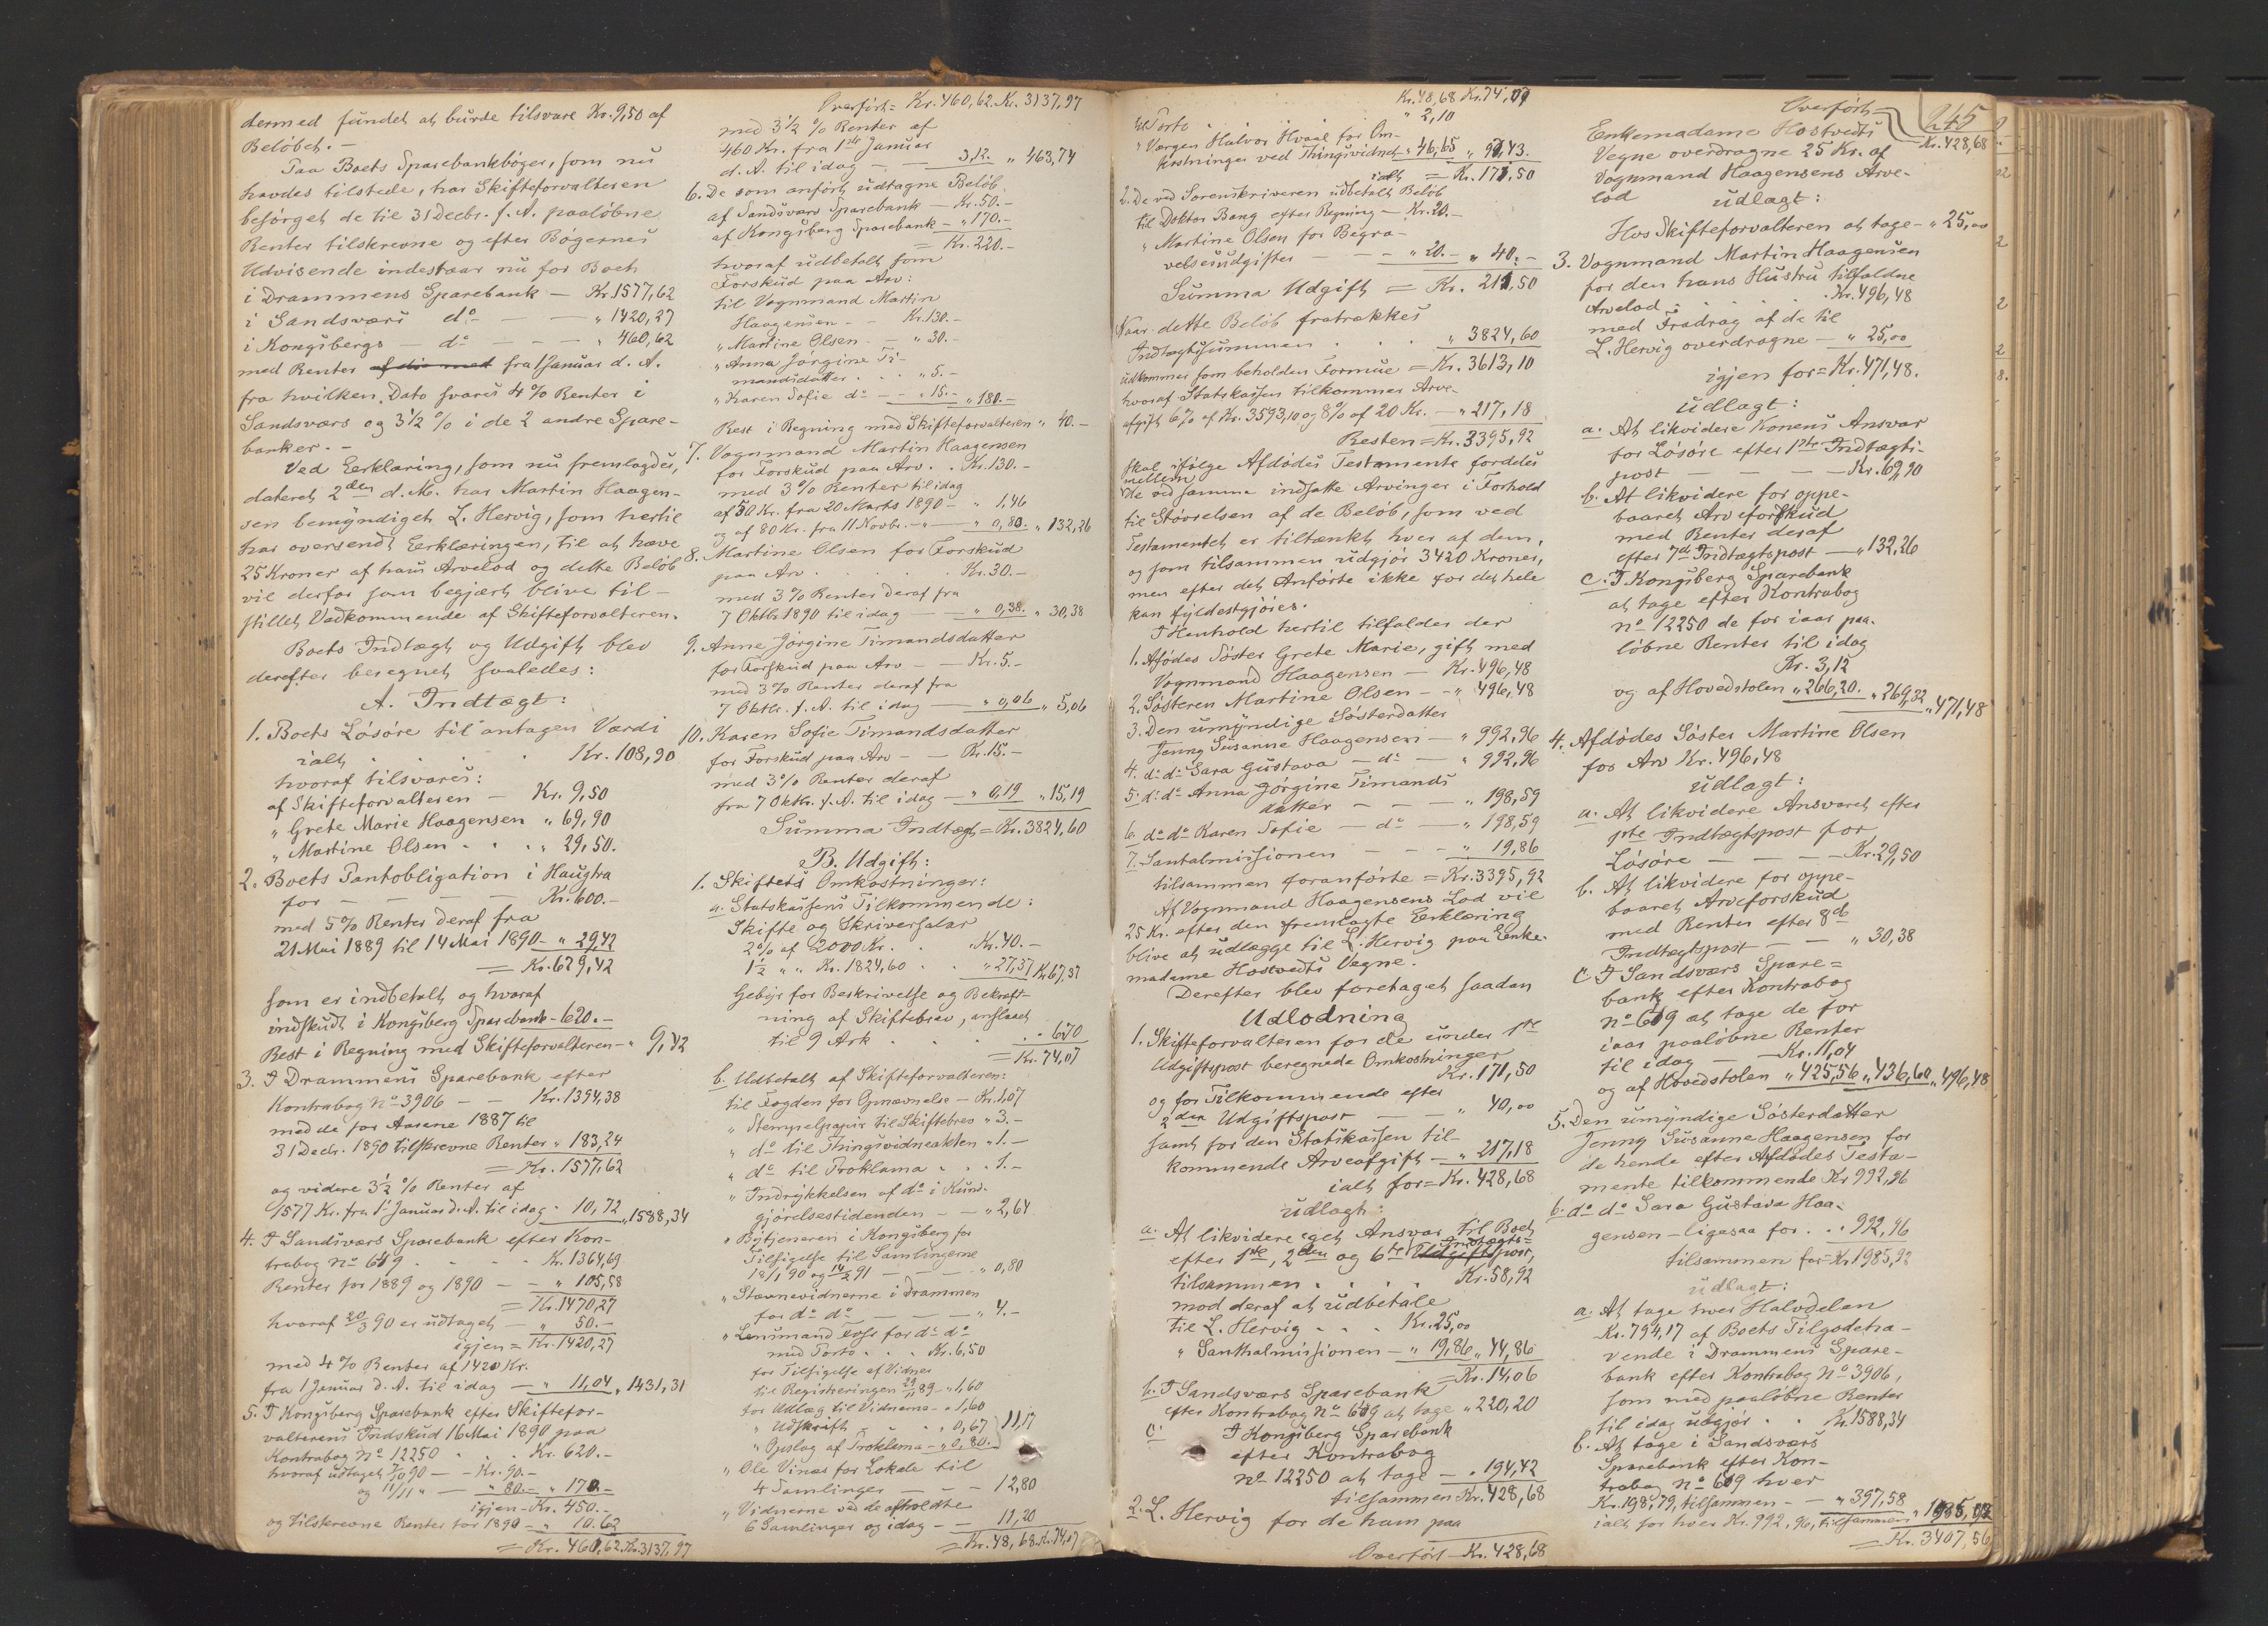 dermed fundet at burde tilsvare Kr. 9,50 af
Beløbet. -
Paa Boets Sparebankbøger, som nu
havdes tilstede, har Skifteforvalteren
besørget de til 31 Decbr. f. A. paaløbne
Renter tilskrevne og efter Bøgernes
Udvisende indestaar nu for Boet
i Drammens Sparebank — Kr. 1577,62
i Sandsværs do — — " 1420,27
i Kongsbergs — do — — " 460,62
med Renter fra 1 Januar d. A.
fra hvilken Dato svares 4 % Renter i
Sandsværs og 3½ % i de 2 andre Spare-
banker. -
Ved Erklæring, som nu fremlagdes,
dateret 2den d. M. har Martin Haagen-
sen bemyndiget L. Hervig, som hertil
har oversendt Erklæringen, til at hæve
25 Kroner af hans Arvelod og dette Beløb
vil derfor som begjært blive til-
stillet Vedkommende af Skifteforvalteren.
Boets Indtægt og Udgift blev
derefter beregnet saaledes:
A. Indtægt:
1. Boets Løsøre til antagen Værdi
ialt . . . . Kr. 108,90
hvoraf tilsvares:
af Skifteforvalteren — Kr. 9,50
" Grete Marie Haagensen " 69,90
" Martine Olsen . . . " 29,50.
2. Boets Pantobligation i Haugtra
for — — — — Kr. 600.-
med 5 % Renter deraf fra
21 Mai 1889 til 14 Mai 1890 - " 29,42
= Kr. 629,42
som er indbetalt og hvoraf
indskudt i Kongsberg Sparebank - 620.-
Rest i Regning med Skifteforvalteren - " 9,42
3. I Drammens Sparebank efter
Kontrabog No 3906 — — Kr. 1394,38
med de for Aarene 1887 til
31 Decbr. 1890 tilskrevne Renter " 183,24
= Kr. 1577,62
og videre 3½ % Renter af
1577 Kr. fra 1 Januar d. A. til idag " 10,72 " 1588,34
4. I Sandsværs Sparebank efter Kon-
trabog No 619 . . . . Kr. 1364,69
Renter for 1889 og 1890 — — " 105,58
= Kr. 1470,27
hvoraf 20/3 90 er udtaget — " 50.-
igjen = Kr. 1420,27
med 4 % Renter af 1420 Kr.
fra 1 Januar d. A. til idag — " 11,04 " 1431,31
5. I Kongsberg Sparebank efter Skiftefor-
valterens Indskud 16 Mai 1890 paa
Kontrabog No 12250 . . Kr. 620.-
hvoraf udtaget 7/10 90 — Kr. 90.-
og 11/11 " — " 80.- " 170.-
igjen - Kr. 450.-
og tilskrevne Renter for 1890 = " 10.62
= Kr. 460,62. Kr. 3137,97
Overført = Kr. 460,62. Kr. 3137,97
med 3½ % Renter af
460 Kr. fra 1ste Januar
d. A. til idag — — 3,12. " 463,74
6. De som anført udtagne Beløb
af Sandsværs Sparebank — Kr. 50.-
af Kongsberg Sparebank — " 170.-
= Kr. 220.-
hvoraf udbetalt som
Forskud paa Arv:
til Vognmand Martin
Haagensen - - Kr. 130.-
" Martine Olsen — " 30.-
" Anna Jørgine Ti-
mandsdatter . . . " 5.-
" Karen Sofie do — " 15.- " 180.-
Rest i Regning med Skifteforvalteren " 40.-
7. Vognmand Martin Haagensen
for Forskud paa Arv . . Kr. 130.-
med 3 % Renter til idag
af 50 Kr. fra 20 Marts 1890 — " 1,46
og af 80 Kr. fra 11 Novbr. — " — " 0,80. " 132,26
8. Martine Olsen for Forskud
paa Arv . . . . Kr. 30.-
med 3 % Renter deraf fra
7 Oktbr 1890 til idag — — " 0,38. " 30,38
9. Anne Jørgine Timandsdatter
for Forskud paa Arv — — Kr. 5.-
med 3 % Renter deraf fra
7 Oktbr. f. A. til idag — " 0,06 " 5,06
10. Karen Sofie Timandsdatter
for Forskud paa Arv — — Kr. 15.-
med 3 % Renter deraf
fra 7 Oktbr. f. A. til idag — " 0,19 " 15,19
Summa Indtægt = Kr. 3824,60
B. Udgift:
1. Skiftets Omkostninger:
a. Statskassens Tilkommende:
Skifte og Skriversalær
2 % af 2000 Kr. . . Kr. 40.-
1½ " " Kr. 1824,60 . . " 27,37 Kr. 67,37
Gebyr for Beskrivelse og Bekræft-
ning af Skiftebrev, anslaaet
til 9 Ark . . . . " 6,70
= Kr. 74,07
b. Udbetalt af Skifteforvalteren:
til Fogden for Opnævnelse - Kr. 1,07
" Stempelpapir til Skiftebrev " 3.-
" do til Thingsvidneakten " 1.-
" do til Proklama . . " 1.-
" Indrykkelsen af do i Kund-
gjørelsestidenden — — " 2,64
" Bytjeneren i Kongsberg for
Tilsigelse til Samlingerne
18/1 90 og 14/2 91 — — — " 0,80
" Stævnevidnerne i Drammen
for do do — — — " 4.-
" Lensmand Foss for do do
med Porto . . . Kr. 6,50
for Tilsigelse af Vidner
til Registreringen 29/1 89 — " 1,60
for Udlæg til Vidnerne - " 1,60
" Udskrift . . . " 0,67
" Opslag af Proklama - " 0,80. 11,17
" Ole Vinæs for Lokale til
4 Samlinger — — — 12,80
" Vidnerne ved de afholdte
6 Samlinger og idag — — 11,20
= Kr. 48,68. Kr. 74,07
Kr. 48,68 Kr. 74,07
Porto " 2,10
" Værgen Halvor Hvaal for Om-
kostninger ved Thingsvidnet " 46,65 " 97,43.
ialt = Kr. 171,50
2. De ved Sorenskriveren udbetalt Beløb
til Doktor Bang efter Regning — Kr. 20.-
" Martine Olsen for Begra-
velsesudgifter — — — " 20.- " 40.-
Summa Udgift = Kr. 211,50
Naar dette Beløb fratrækkes
Indtægtssummen . . . " 3824,60
udkommer som beholden Formue = Kr. 3613,10
hvoraf Statskassen tilkommer Arve-
afgift 6 % af Kr. 3593,10 og 8 % af 20 Kr. — " 217,18
Resten = Kr. 3395,92
skal ifølge Afdødes Testamente fordeles
mellem
de ved samme indsatte Arvinger i Forhold
til Størrelsen af de Beløb, som ved
Testamentet er tiltænkt hver af dem,
og som tilsammen udgjør 3420 Kroner,
men efter det Anførte ikke for det hele
kan fyldestgjøres.
I Henhold hertil tilfalder der
1. Afdødes Søster Grete Marie, gift med
Vognmand Haagensen — Kr. 496,48
2. Søsteren Martine Olsen - - " 496,48
3. Den umyndige Søsterdatter
Jenny Susanne Haagensen — " 992,96
4. do do Sara Gustava — do — " 992,96
5. do do Anna Jørgine Timands
datter — — — " 198,59
6. do do Karen Sofie — do — " 198,59
7. Santalmissionen — — — " 19,86
tilsammen foranførte = Kr. 3395,92
Af Vognmand Haagensens Lod vil
25 Kr. efter den fremlagte Erklæring
blive at udlægge til L. Hervig paa Enke-
madame Hostvedts Vegne.
Derefter blev foretaget saadan
Udlodning
1. Skifteforvalteren for de under 1ste
Udgiftspost beregnede Omkostninger
Kr. 171,50
og for Tilkommende efter
2den Udgiftspost — — " 40,00
samt for den Statskassen til-
kommende Arveafgift — " 217,18
ialt for = Kr. 428,68
udlagt:
a. At likvidere eget Ansvar til Boet
efter 1ste, 2den og 6te Indtægts-
post,
tilsammen . . . . Kr. 58,92
mod deraf at udbetale
til L. Hervig . . . Kr. 25,00
" Santhalmissionen — " 19,86 " 44,86
= Kr. 14,06
b. I Sandsværs Sparebank
efter Kontrabog No 619 at tage " 220,20
c. I Kongsberg Sparebank
efter Kontrabog
No 12250 at tage — " 194,42
tilsammen Kr. 428,68
2. L. Hervig for de ham paa
Overført — Kr. 428,68
245
Overført —
Kr. 428,68
Enkemadame Hostvedts
Vegne overdragne 25 Kr. af
Vognmand Haagensens Arve-
lod udlagt:
Hos Skifteforvalteren at tage - " 25,00
3. Vognmand Martin Haagensen
for den hans Hustru tilfaldne
Arvelod . . . . . Kr. 496,48
med Fradrag af de til
L. Hervig overdragne — " 25,00
igjen for = Kr. 471,48.
udlagt:
a. At likvidere Konens Ansvar
for Løsøre efter 1ste Indtægts-
post — — — — Kr. 69,90
b. At likvidere for oppe-
baaret Arveforskud
med Renter deraf
efter 7de Indtægtspost — " 132,26
c. I Kongsberg Sparebank
at tage efter Kontrabog
No 12250 de for iaar paa-
løbne Renter til idag
Kr. 3,12
og af Hovedstolen " 266,20. " 269,32 " 471,48
4. Afdødes Søster Martine Olsen
for Arv Kr. 496,48
udlagt:
a. At likvidere Ansvaret efter
1ste Indtægtspost for
Løsøre — — — — Kr. 29,50
b. At likvidere for oppe-
baaret Arveforskud
med Renter efter 8de
Indtægtspost — — " 30,38
c I Sandsværs Spare=
bank efter Kontrabog
No 619 at tage de for
iaar paaløbne Renter
til idag — Kr. 11,04
og af Hovedstolen " 425,56 " 436,60 " 496,48
5. Den umyndige Søsterdatter
Jenny Susanne Haagensen for
de hende efter Afdødes Testa-
mente tilkommende Kr 992,96
6. do do Sara Gustava Haa-
gensen - ligesaa for . . " 992,96
tilsammen for = Kr 1985,92
udlagt:
a. At tage hver Halvdelen
Kr. 794,17 af Boets Tilgodeha-
vende i Drammens Spare-
bank efter Kontrabog No 3906,
som med paaløbne Renter
til idag udgjør . . Kr. 1588,34
b. At tage i Sandsværs
Sparebank efter Kon-
trabog No 619 hver
Kr. 198,79, tilsammen - — " 397,58
ialt for hver Kr. 992,96, tilsammen " 1985,92
= Kr. 3407,56